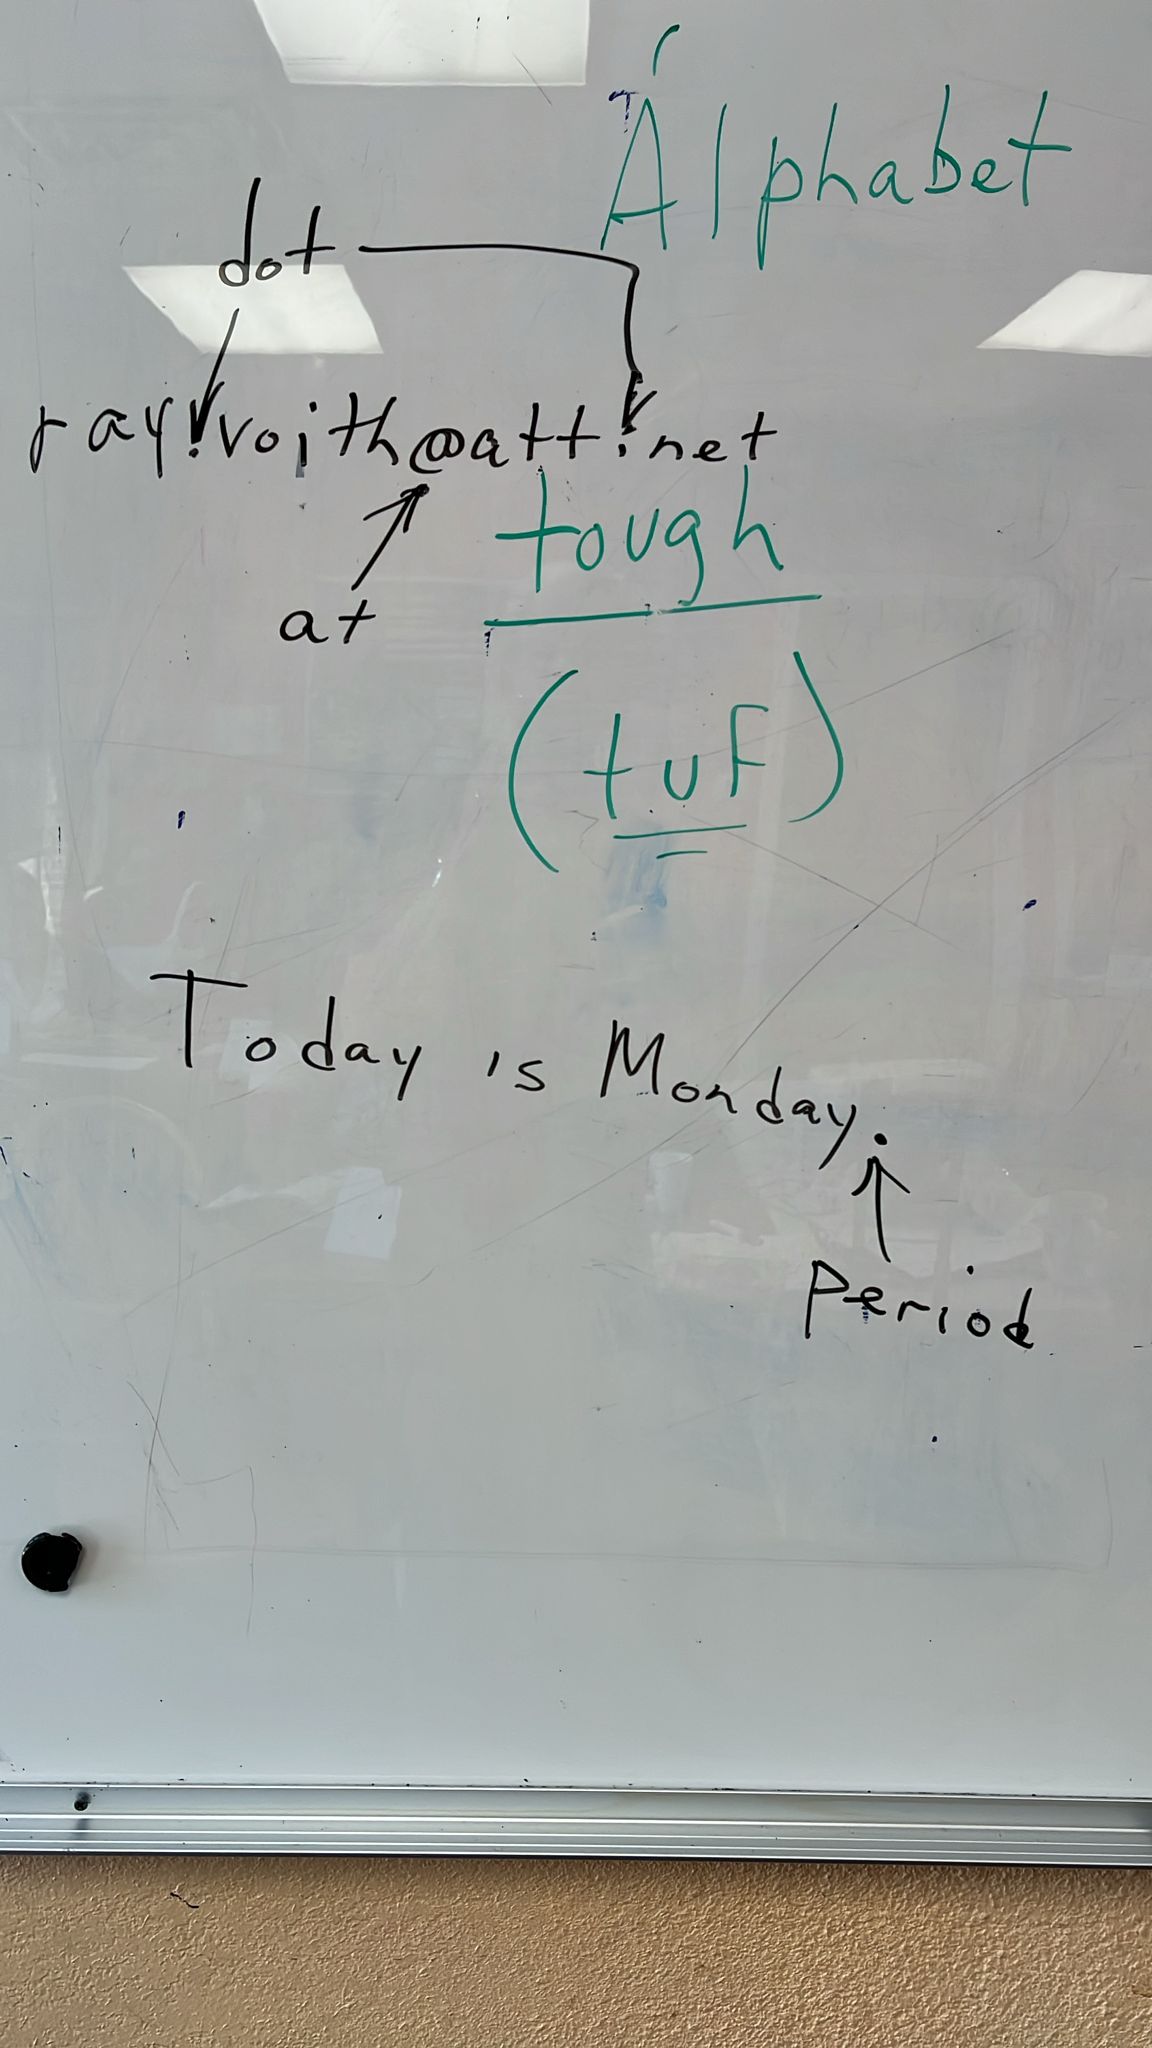 Álphabet
dot
ray.voith@att.net
at
tough
(tuf)
Today is Monday.
Period